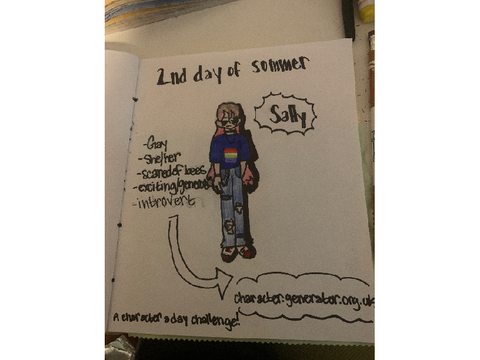 2nd day of sommer
Sally
-Gay
-she/her
-scared of bees
-exciting/generous
-introvert
character.generator.org.uk
A character a day challenge!